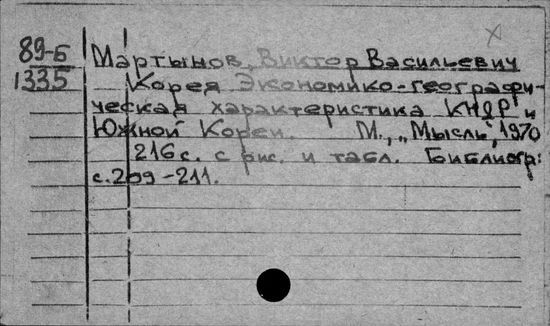 89-Б
1335
Мартынов, Виктор Васильевич
Корея Экономико-географи-
ческая характеристика КНДР и
Южной Кореи. М., „Мысль", 1970
216 с. с рис. и табл. Библиогр:
с. 209-211.